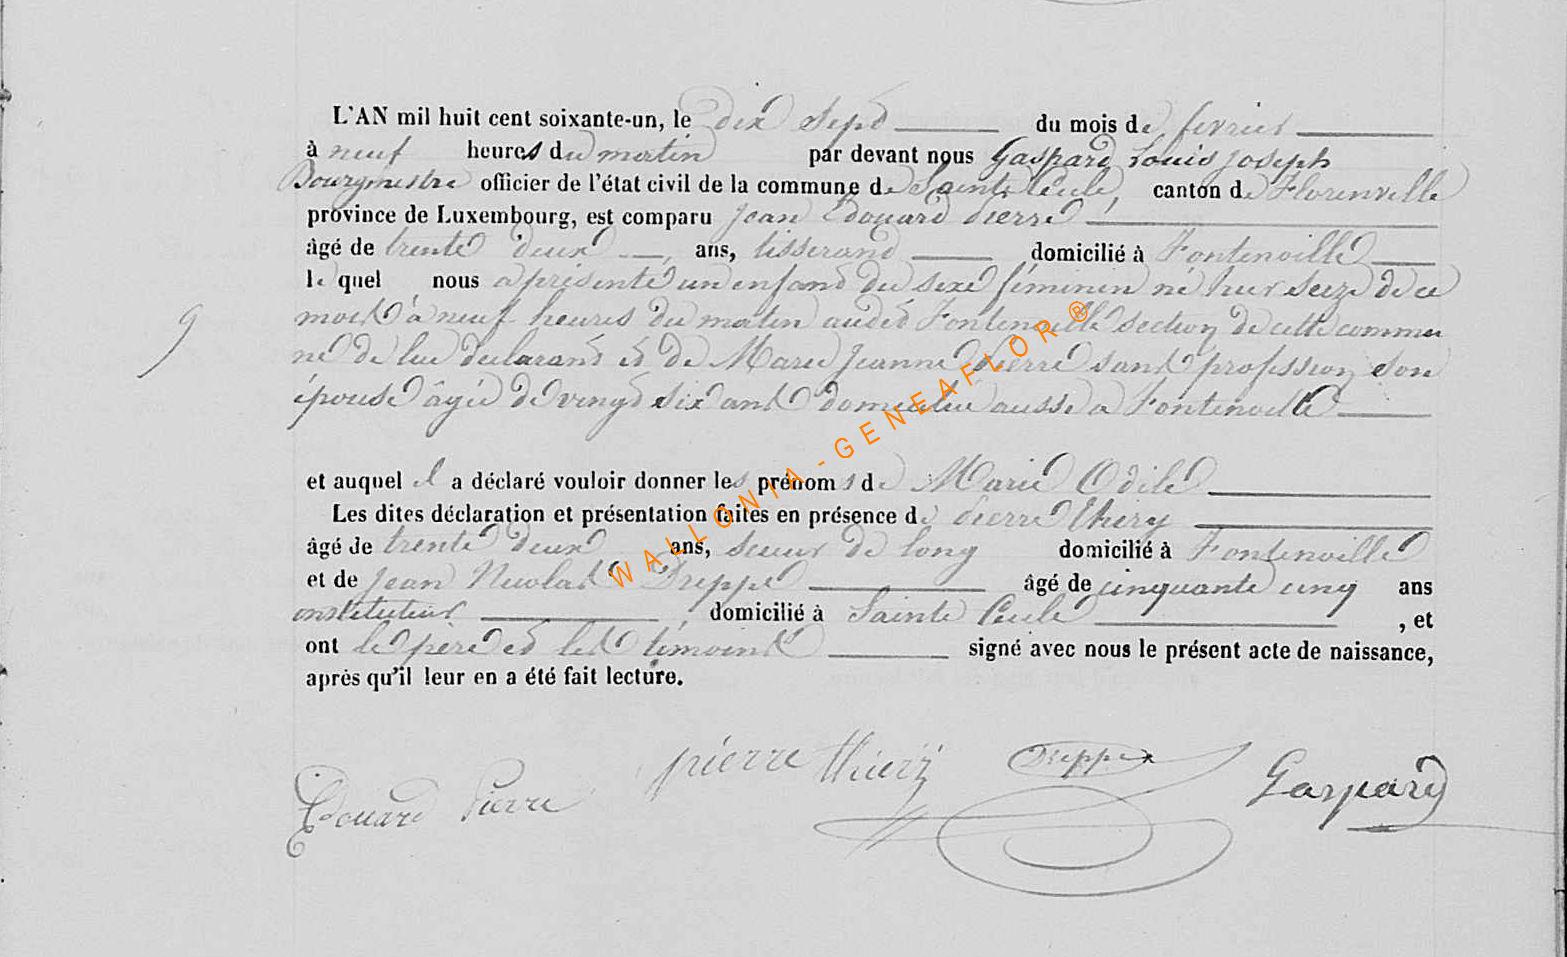 L'AN mil huit cent soixante-un, le dix sept du mois de fevrier
à neuf heures du matin par devant nous Gaspard Louis Joseph
Bourgmestre officier de l'état civil de la commune de Sainte Cecile, canton de Florenville
province de Luxembourg, est comparu Jean Edouard Pierre
âgé de trente deux ans, tisserand domicilié à Fontenoille
le quel nous a présenté un enfant du sexe féminin né hier seize de ce
mois à neuf heures du matin audit Fontenoille section de cette commu
ne de lui declarant et de Marie Jeanne Pierre sans profession son
épouse âgée de vingt six ans domiciliée aussi a Fontenoille
9
et auquel il a déclaré vouloir donner les prénoms de Marie Odile
Les dites déclaration et présentation faites en présence de Pierre Thiery
âgé de trente deux ans, scieur de long domicilié à Fontenoille
et de Jean Nicolas Preppe âgé de cinquante cinq ans
instituteur, domicilié à Sainte Cecile, et
ont le père et les témoins signé avec nous le présent acte de naissance,
après qu'il leur en a été fait lecture.
Edouard Pierre pierre thierÿ Gaspard
WALLONIA-GENEAFLOR ®